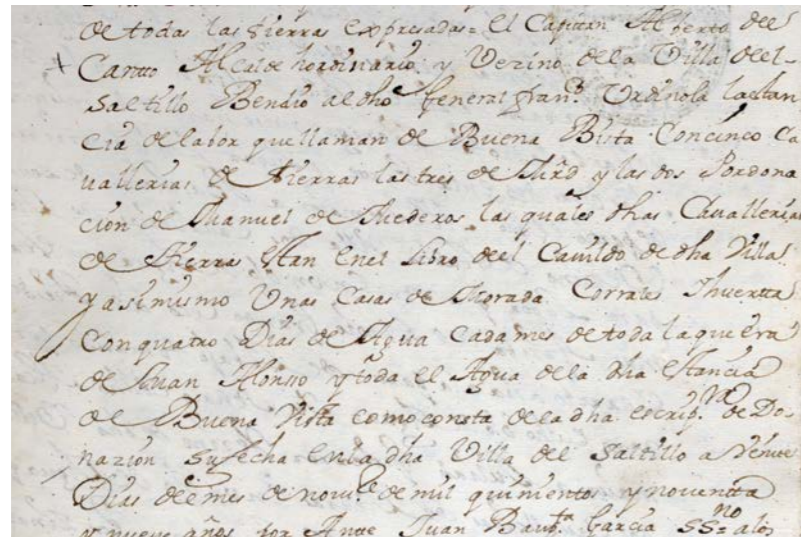 de todas las tierras expresadas = El Capitan Alberto del
Canto Alcalde hordinario y Vezino de la Villa del
Saltillo Bendio al dho General Fran.co Urdinola la stan
cia de labor que llaman de Buena Bista Con cinco Ca
uallerias de tierras las tres de Mrd y las dos Por dona
cion de Manuel de Mederos las quales dhas Cauallerias
de tierra stan En el Libro del Cauildo de dha Villa
y asimismo Unas Casas de Morada Corrales Y huertta
Con quatro Dias de Agua Cada mes de toda la que era
de Juan Alonso y toda el Agua de la dha estancia
de Buena Vista como consta de la dha escrip.va de Do-
nazion su fecha En la dha Villa del Saltillo a Veinte
Dias del mes de nou.e de mil quinientos y nouentta
y nueve años por Antte Juan Baup.ta Garcia SS.no a los